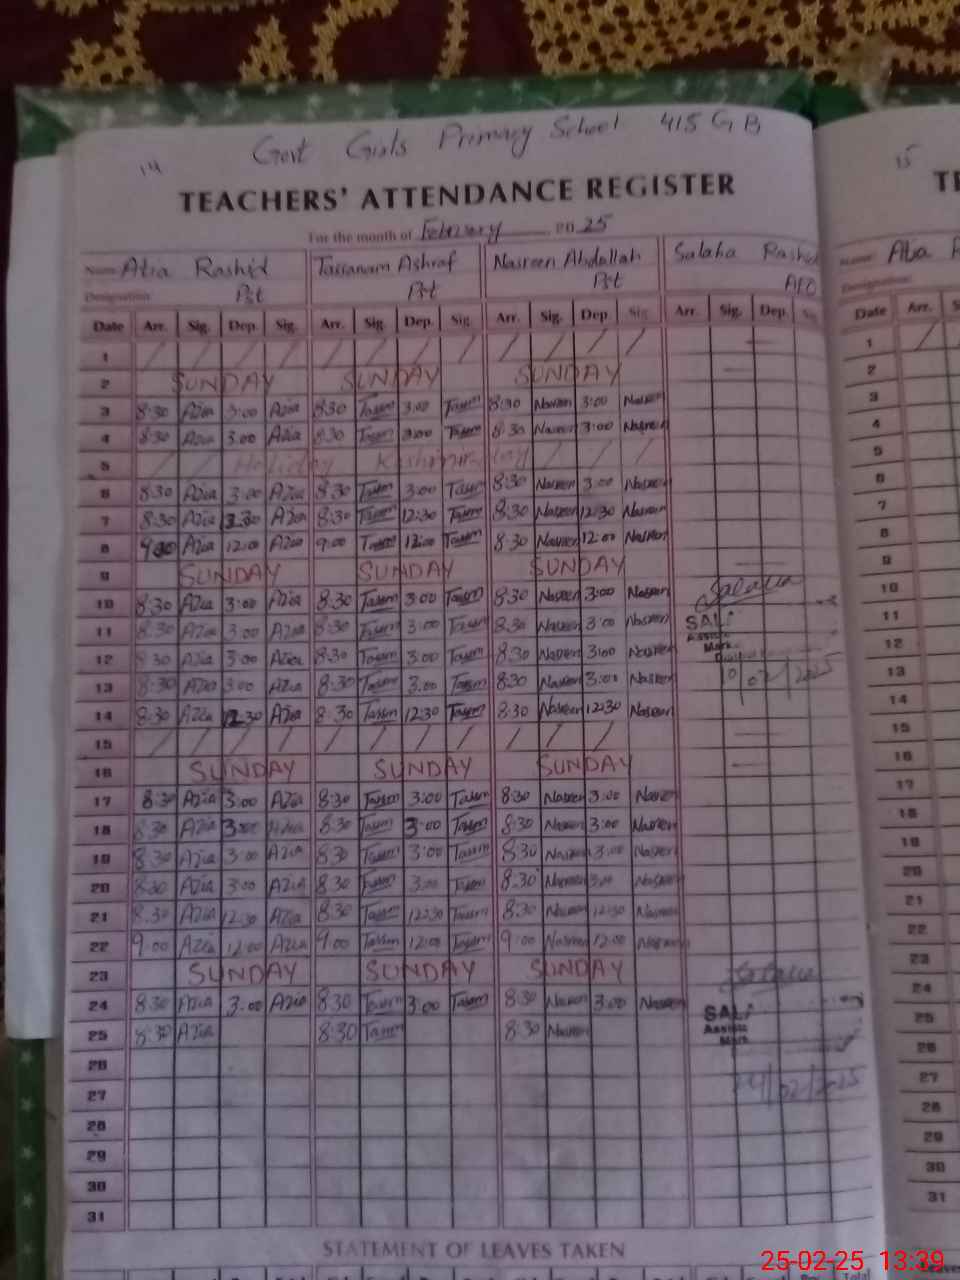 Govt Girls Primary School 415 GB
14
15
TEACHERS' ATTENDANCE REGISTER
For the month of February 2025
Name Atia Rashid Tarranam Ashraf Nasreen Abdallah Salaha Rashid
Designation Pst Pst Pst AEO
Date Arr. Sig. Dep. Sig. Arr. Sig. Dep. Sig. Arr. Sig. Dep. Sig. Arr. Sig. Dep. Sig.
1 / / / / / / / / / / / /
2 SUNDAY SUNDAY SUNDAY
3 8:30 Azia 3:00 Azia 8:30 Tasm 3:00 Tasm 8:30 Nasreen 3:00 Nasreen
4 8:30 Azia 3:00 Azia 8:30 Tasm 3:00 Tasm 8:30 Nasreen 3:00 Nasreen
5 / / Holiday Kashmir day / / /
6 8:30 Azia 3:00 Azia 8:30 Tasm 3:00 Tasm 8:30 Nasreen 3:00 Nasreen
7 8:30 Azia 12:30 Azia 8:30 Tasm 12:30 Tasm 8:30 Nasreen 12:30 Nasreen
8 9:00 Azia 12:00 Azia 9:00 Tasm 12:00 Tasm 8:30 Nasreen 12:00 Nasreen
9 SUNDAY SUNDAY SUNDAY
10 8:30 Azia 3:00 Azia 8:30 Tasm 3:00 Tasm 8:30 Nasreen 3:00 Nasreen Salaha
11 8:30 Azia 3:00 Azia 8:30 Tasm 3:00 Tasm 8:30 Nasreen 3:00 Nasreen SAL
12 8:30 Azia 3:00 Azia 8:30 Tasm 3:00 Tasm 8:30 Nasreen 3:00 Nasreen
13 8:30 Azia 3:00 Azia 8:30 Tasm 3:00 Tasm 8:30 Nasreen 3:00 Nasreen 10/02/2025
14 8:30 Azia 12:30 Azia 8:30 Tasm 12:30 Tasm 8:30 Nasreen 12:30 Nasreen
15 / / / / / / / / / / /
16 SUNDAY SUNDAY SUNDAY
17 8:30 Azia 3:00 Azia 8:30 Tasm 3:00 Tasm 8:30 Nasreen 3:00 Nasreen
18 8:30 Azia 3:00 Azia 8:30 Tasm 3:00 Tasm 8:30 Nasreen 3:00 Nasreen
19 8:30 Azia 3:00 Azia 8:30 Tasm 3:00 Tasm 8:30 Nasreen 3:00 Nasreen
20 8:30 Azia 3:00 Azia 8:30 Tasm 3:00 Tasm 8:30 Nasreen 3:00 Nasreen
21 8:30 Azia 12:30 Azia 8:30 Tasm 12:30 Tasm 8:30 Nasreen 12:30 Nasreen
22 9:00 Azia 12:00 Azia 9:00 Tasm 12:00 Tasm 9:00 Nasreen 12:00 Nasreen
23 SUNDAY SUNDAY SUNDAY Salaha
24 8:30 Azia 3:00 Azia 8:30 Tasm 3:00 Tasm 8:30 Nasreen 3:00 Nasreen SAL
25 8:30 Azia 8:30 Tasm 8:30 Nasreen
26
27 24/02/2025
28
29
30
31
STATEMENT OF LEAVES TAKEN
25-02-25 13:39